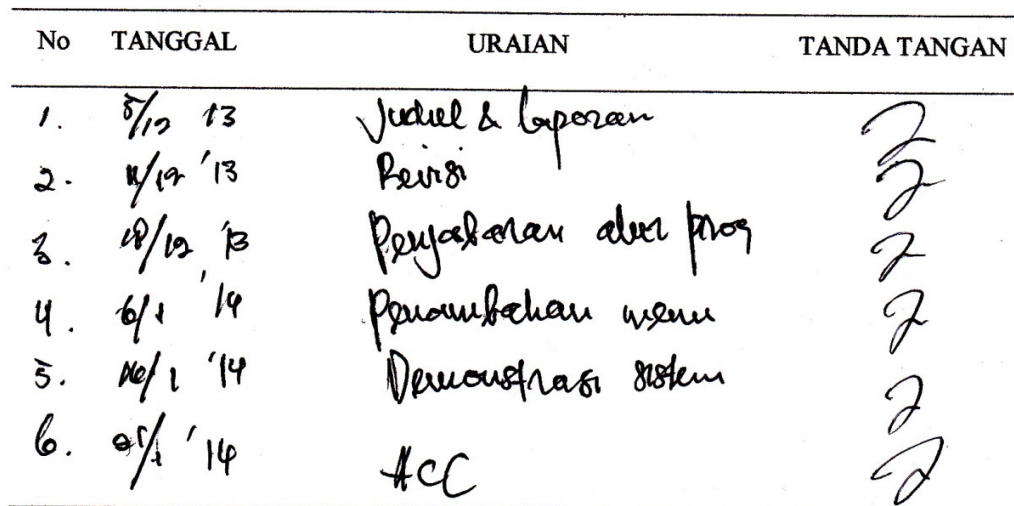 No TANGGAL URAIAN TANDA TANGAN
1. 5/12 13 Judul & laporan
2. 11/12 '13 Revisi
3. 18/12 '13 Penjabaran alur prog
4. 6/1 '14 Penambahan menu
5. 16/1 '14 Demonstrasi sistem
6. /1 '14 ACC